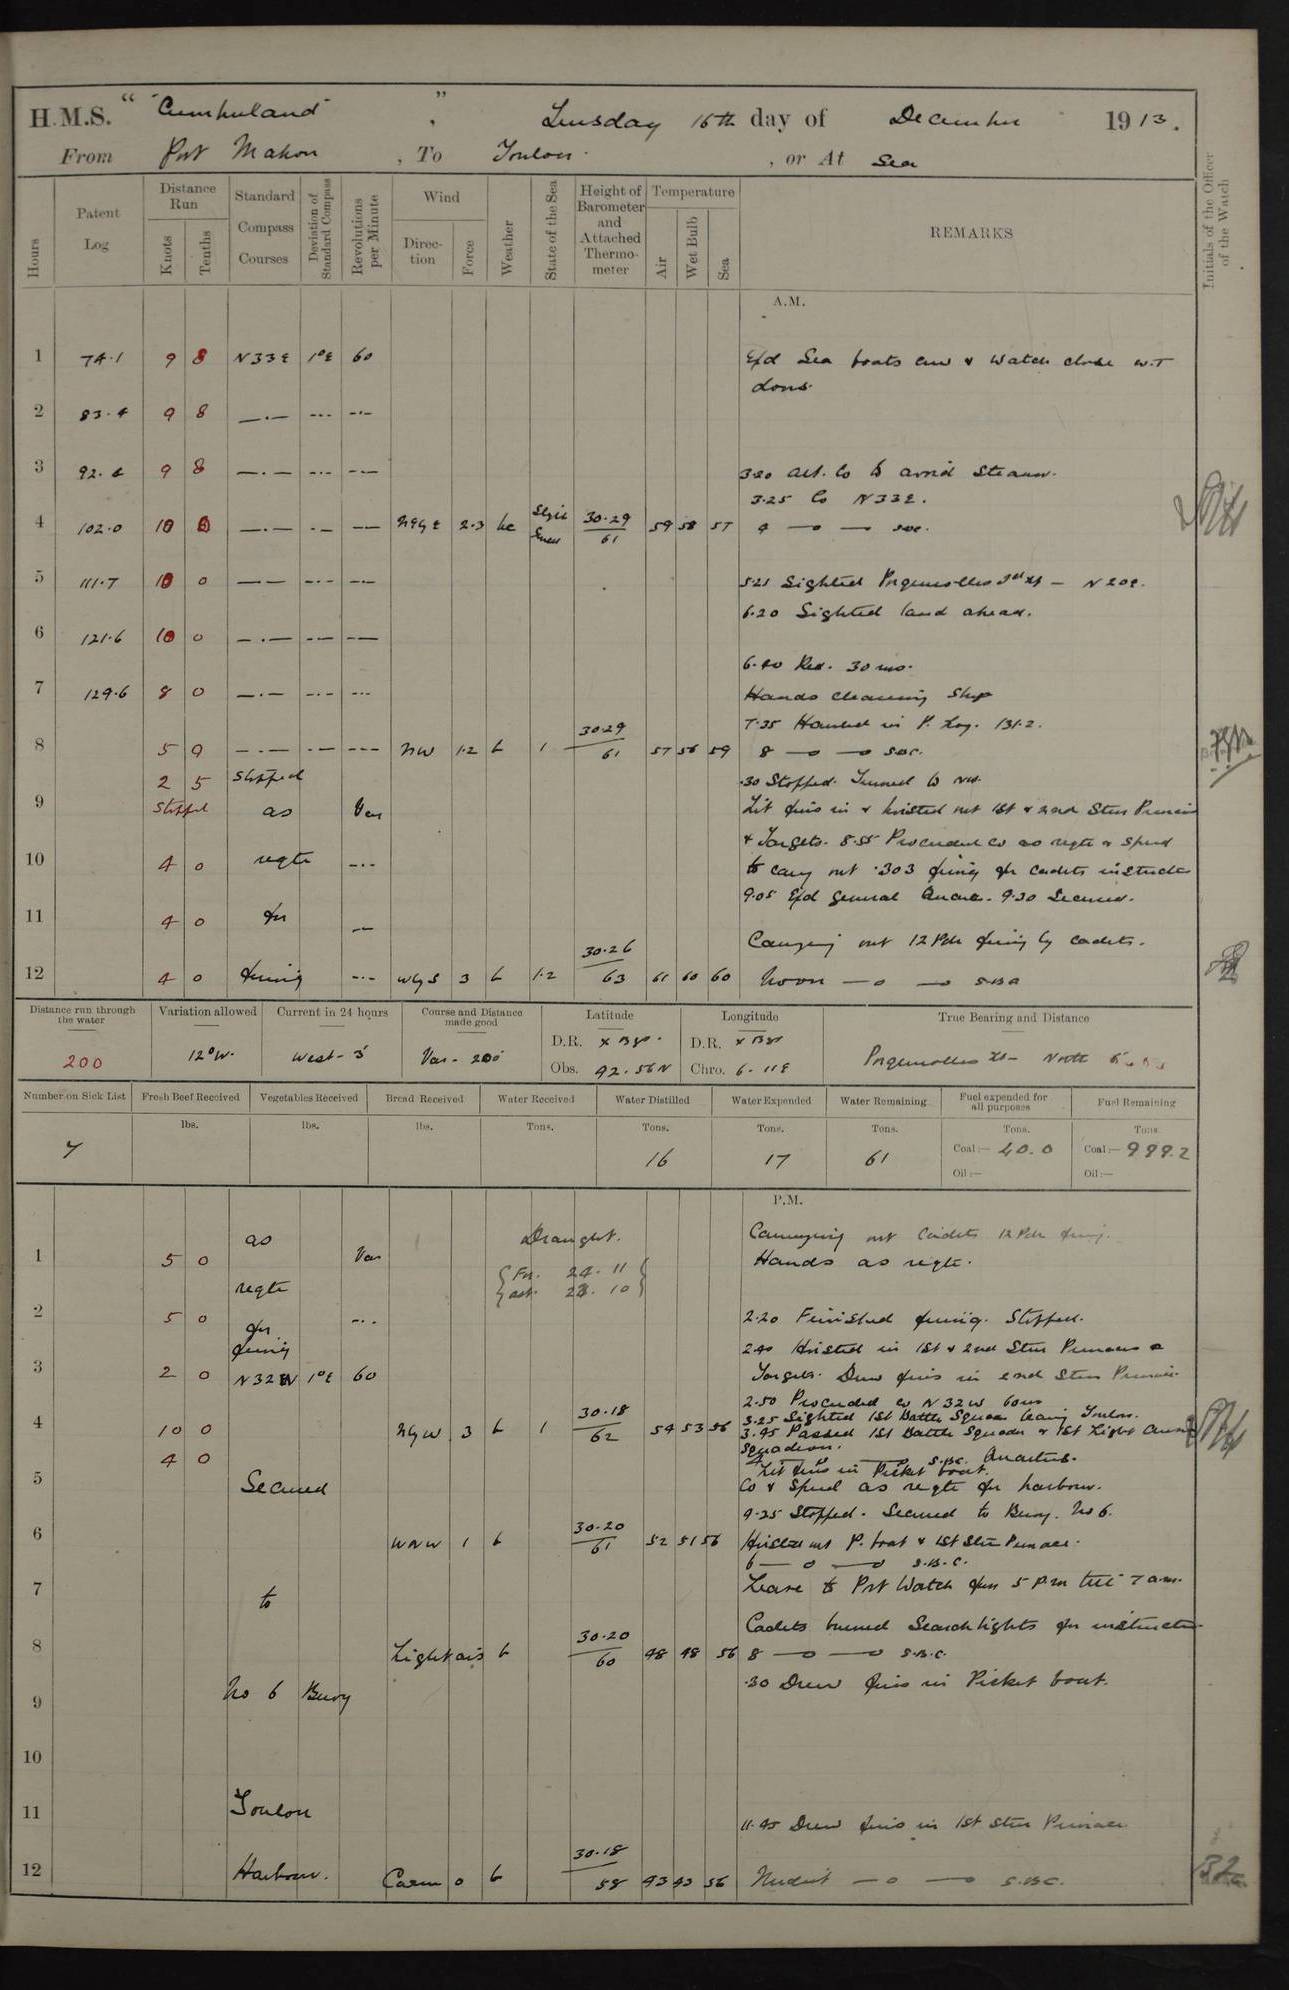 H.M.S. " Cumberland " , Tuesday 16th day of December 1913.
From Port Mahon , To Toulon. , or At Sea
Hours
Patent Log
Distance Run
Knots
Tenths
Standard Compass Courses
Deviation of Standard Compass
Revolutions per Minute
Wind
Direction
Force
Weather
State of the Sea
Height of Barometer and Attached Thermometer
Temperature
Air
Wet Bulb
Sea
REMARKS
Initials of the Officer of the Watch
A.M.
1 74.1 9 8 N33E 1°E 60 Ex'd Sea boats crew & Watch close W.T
doors.
2 83.4 9 8 —.— —.— —.—
3 92. 9 8 —.— —.— —.— 3.20 Alt. Co to avoid Steamer.
3.25 Co N33E.
4 102.0 10 0 —.— —.— —— N by E 2.3 bc 30.29/61 59 58 57 4 —o —o
5 111.7 10 0 —— —.— —.— 5.21 Sighted Porquerolles — N20E.
6.20 Sighted land ahead.
6 121.6 10 0 —.— —.— ——
6.40 Red. 30 revs.
7 129.6 8 0 —.— —.— —.— Hands cleaning Ship
7.35 Hauled in P. Log. 131.2.
8 5 9 —.— —.— —.— NW 1.2 b 1 30.29/61 57 56 59 8 —o —o
2 5 Stopped .30 Stopped. Turned to NW.
9 Stopped as Var Lit fires in & hoisted out 1st & 2nd Stm Pinnaces
& Targets. 8.55 Proceeded Co as reqte & speed
10 4 0 reqte —.— to carry out .303 firing for Cadets instruction
9.05 Ex'd General Quarters. 9.30 Secured.
11 4 0 for —.—
Carrying out 12 Pdr firing by Cadets.
12 4 0 firing —.— W by S 3 b 1.2 30.26/63 61 60 60 Noon —o —o
Distance run through the water
200
Variation allowed
12°W.
Current in 24 hours
West - 5'
Course and Distance made good
Var - 200
Latitude
D.R. × Brgs.
Obs. 42.56N
Longitude
D.R. × Brgs
Chro. 6.11E
True Bearing and Distance
Porquerolles North
Number on Sick List
7
Fresh Beef Received
lbs.
Vegetables Received
lbs.
Bread Received
lbs.
Water Received
Tons.
Water Distilled
Tons.
16
Water Expended
Tons.
17
Water Remaining
Tons.
61
Fuel expended for all purposes
Tons.
Coal:— 40.0
Oil:—
Fuel Remaining
Tons.
Coal:— 999.2
Oil:—
P.M.
as Draught. Carrying out Cadets 12 Pdr firing.
1 5 0 Var For. 24.11 Hands as reqte.
reqte aft. 23.10
2 5 0 for —.— 2.20 Finished firing. Stopped.
firing 2.40 Hoisted in 1st & 2nd Stm Pinnaces &
3 2 0 N32W 1°E 60 Targets. Drew fires in 2nd Stm Pinnace.
2.50 Proceeded Co N32W 60 revs
3.25 Sighted 1st Battle Squadron leaving Toulon.
4 10 0 N by W 3 b 1 30.18/62 54 53 56 3.45 Passed 1st Battle Squadron & 1st Light Cruiser
Squadron.
4 0 4 —o —o S.B.C. Quarters.
Lit fires in Picket boat.
5 Secured Co & Speed as reqte for harbour.
4.25 Stopped. Secured to Buoy. No 6.
6 WNW 1 b 30.20/61 52 51 56 Hoisted out P. boat & 1st Stm Pinnace.
6 —o —o S.B.C.
7 to Leave to Port Watch from 5 p.m till 7 a.m.
Cadets burned Searchlights for instruction
8 Light airs b 30.20/60 48 48 56 8 —o —o S.B.C.
No 6 Buoy .30 Drew fires in Picket boat.
9
10
11 Toulon
11.45 Drew fires in 1st Stm Pinnace
12 Harbour. Calm 0 b 30.18/58 43 43 56 Midnt —o —o S.B.C.